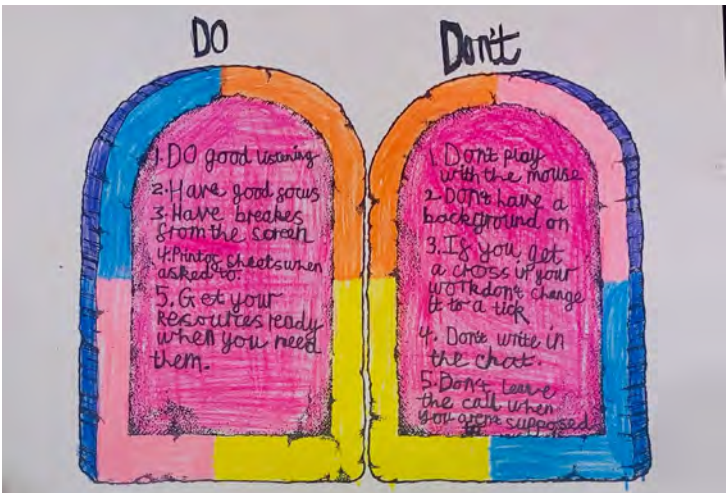 DO
1. DO good listening
2. Have good focus
3. Have breakes
from the screen
4. Printos sheets when
asked to.
5. Get your
Resources ready
when you need
them.
Don't
1. Dont play
with the mouse
2. DON't have a
background on
3. If you get
a cross in your
work dont change
it to a tick
4. Don't write in
the chat.
5. Don't leave
the call when
you arent supposed